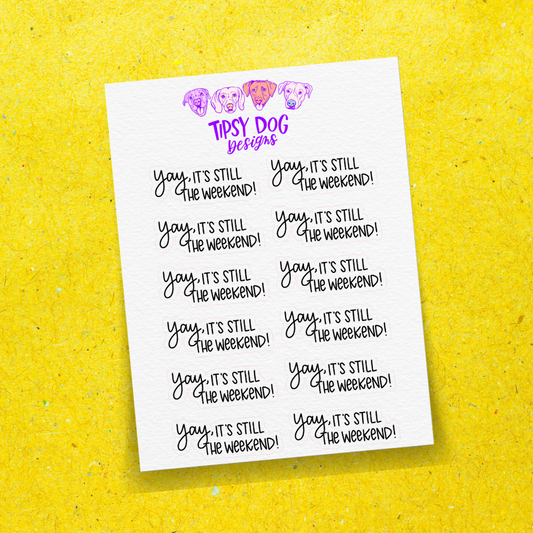 TIPSY DOG
Designs
Yay, IT'S STILL
THE WEEKEND!
Yay, IT'S STILL
THE WEEKEND!
Yay, IT'S STILL
THE WEEKEND!
Yay, IT'S STILL
THE WEEKEND!
Yay, IT'S STILL
THE WEEKEND!
Yay, IT'S STILL
THE WEEKEND!
Yay, IT'S STILL
THE WEEKEND!
Yay, IT'S STILL
THE WEEKEND!
Yay, IT'S STILL
THE WEEKEND!
Yay, IT'S STILL
THE WEEKEND!
Yay, IT'S STILL
THE WEEKEND!
Yay, IT'S STILL
THE WEEKEND!